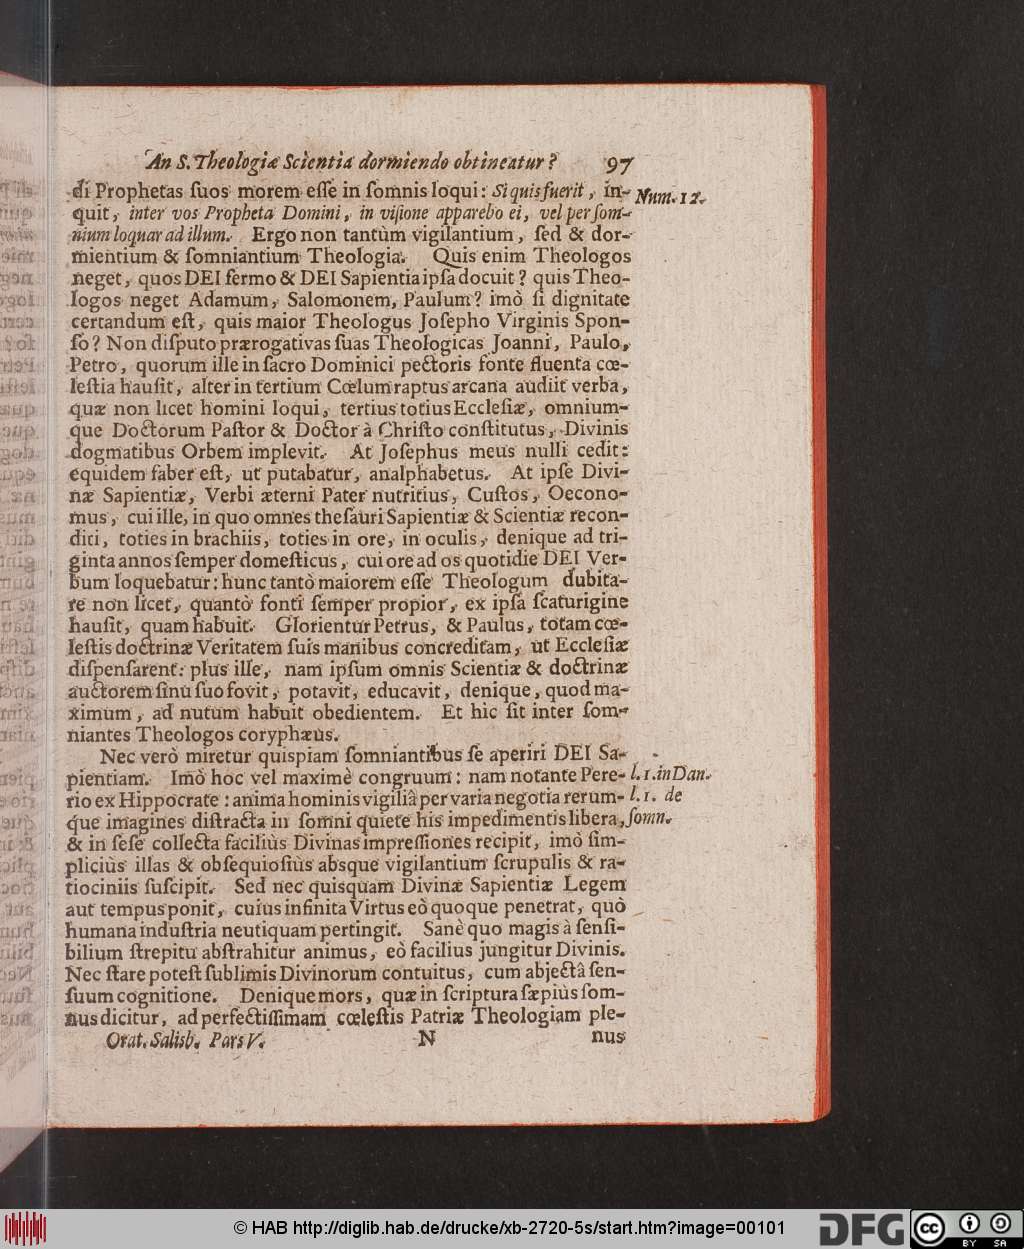 An S. Theologiæ Scientia dormiendo obtineatur? 97
di Prophetas ſuos morem eſſe in ſomnis loqui: Si quis fuerit, in- Num. 12.
quit, inter vos Propheta Domini, in viſione apparebo ei, vel per ſom-
nium loquar ad illum. Ergo non tantùm vigilantium, ſed & dor-
mientium & ſomniantium Theologia. Quis enim Theologos
neget, quos DEI ſermo & DEI Sapientia ipſa docuit? quis Theo-
logos neget Adamum, Salomonem, Paulum? imò ſi dignitate
certandum eſt, quis maior Theologus Joſepho Virginis Spon-
ſo? Non diſputo prærogativas ſuas Theologicas Joanni, Paulo,
Petro, quorum ille in ſacro Dominici pectoris fonte fluenta cœ-
leſtia hauſit, alter in tertium Cœlum raptus arcana audiit verba,
quæ non licet homini loqui, tertius totius Eccleſiæ, omnium-
que Doctorum Paſtor & Doctor à Chriſto conſtitutus, Divinis
dogmatibus Orbem implevit. At Joſephus meus nulli cedit:
equidem faber eſt, ut putabatur, analphabetus. At ipſe Divi-
næ Sapientiæ, Verbi æterni Pater nutritius, Cuſtos, Oecono-
mus, cui ille, in quo omnes theſauri Sapientiæ & Scientiæ recon-
diti, toties in brachiis, toties in ore, in oculis, denique ad tri-
ginta annos ſemper domeſticus, cui ore ad os quotidie DEI Ver-
bum loquebatur: hunc tantò maiorem eſſe Theologum dubita-
re non licet, quantò fonti ſemper propior, ex ipſa ſcaturigine
hauſit, quam habuit. Glorientur Petrus, & Paulus, totam cœ-
leſtis doctrinæ Veritatem ſuis manibus concreditam, ut Eccleſiæ
diſpenſarent: plus ille, nam ipſum omnis Scientiæ & doctrinæ
auctorem ſinu ſuo fovit, potavit, educavit, denique, quod ma-
ximum, ad nutum habuit obedientem. Et hic ſit inter ſom-
niantes Theologos coryphæus.
Nec verò miretur quispiam ſomniantibus ſe aperiri DEI Sa-
pientiam. Imò hoc vel maximè congruum: nam notante Pere- l. 1. in Dan.
rio ex Hippocrate: anima hominis vigiliâ per varia negotia rerum- l. 1. de
que imagines diſtracta in ſomni quiete his impedimentis libera, ſomn.
& in ſeſe collecta faciliùs Divinas impreſſiones recipit, imò ſim-
pliciùs illas & obſequioſiùs absque vigilantium ſcrupulis & ra-
tiociniis ſuſcipit. Sed nec quisquam Divinæ Sapientiæ Legem
aut tempus ponit, cuius infinita Virtus eò quoque penetrat, quò
humana induſtria neutiquam pertingit. Sanè quo magis à ſenſi-
bilium ſtrepitu abſtrahitur animus, eò facilius jungitur Divinis.
Nec ſtare poteſt ſublimis Divinorum contuitus, cum abjectâ ſen-
ſuum cognitione. Denique mors, quæ in ſcriptura ſæpiùs ſom-
nus dicitur, ad perfectiſſimam cœleſtis Patriæ Theologiam ple-
Orat. Salisb. Pars V. N nus
© HAB http://diglib.hab.de/drucke/xb-2720-5s/start.htm?image=00101 DFG CC BY SA